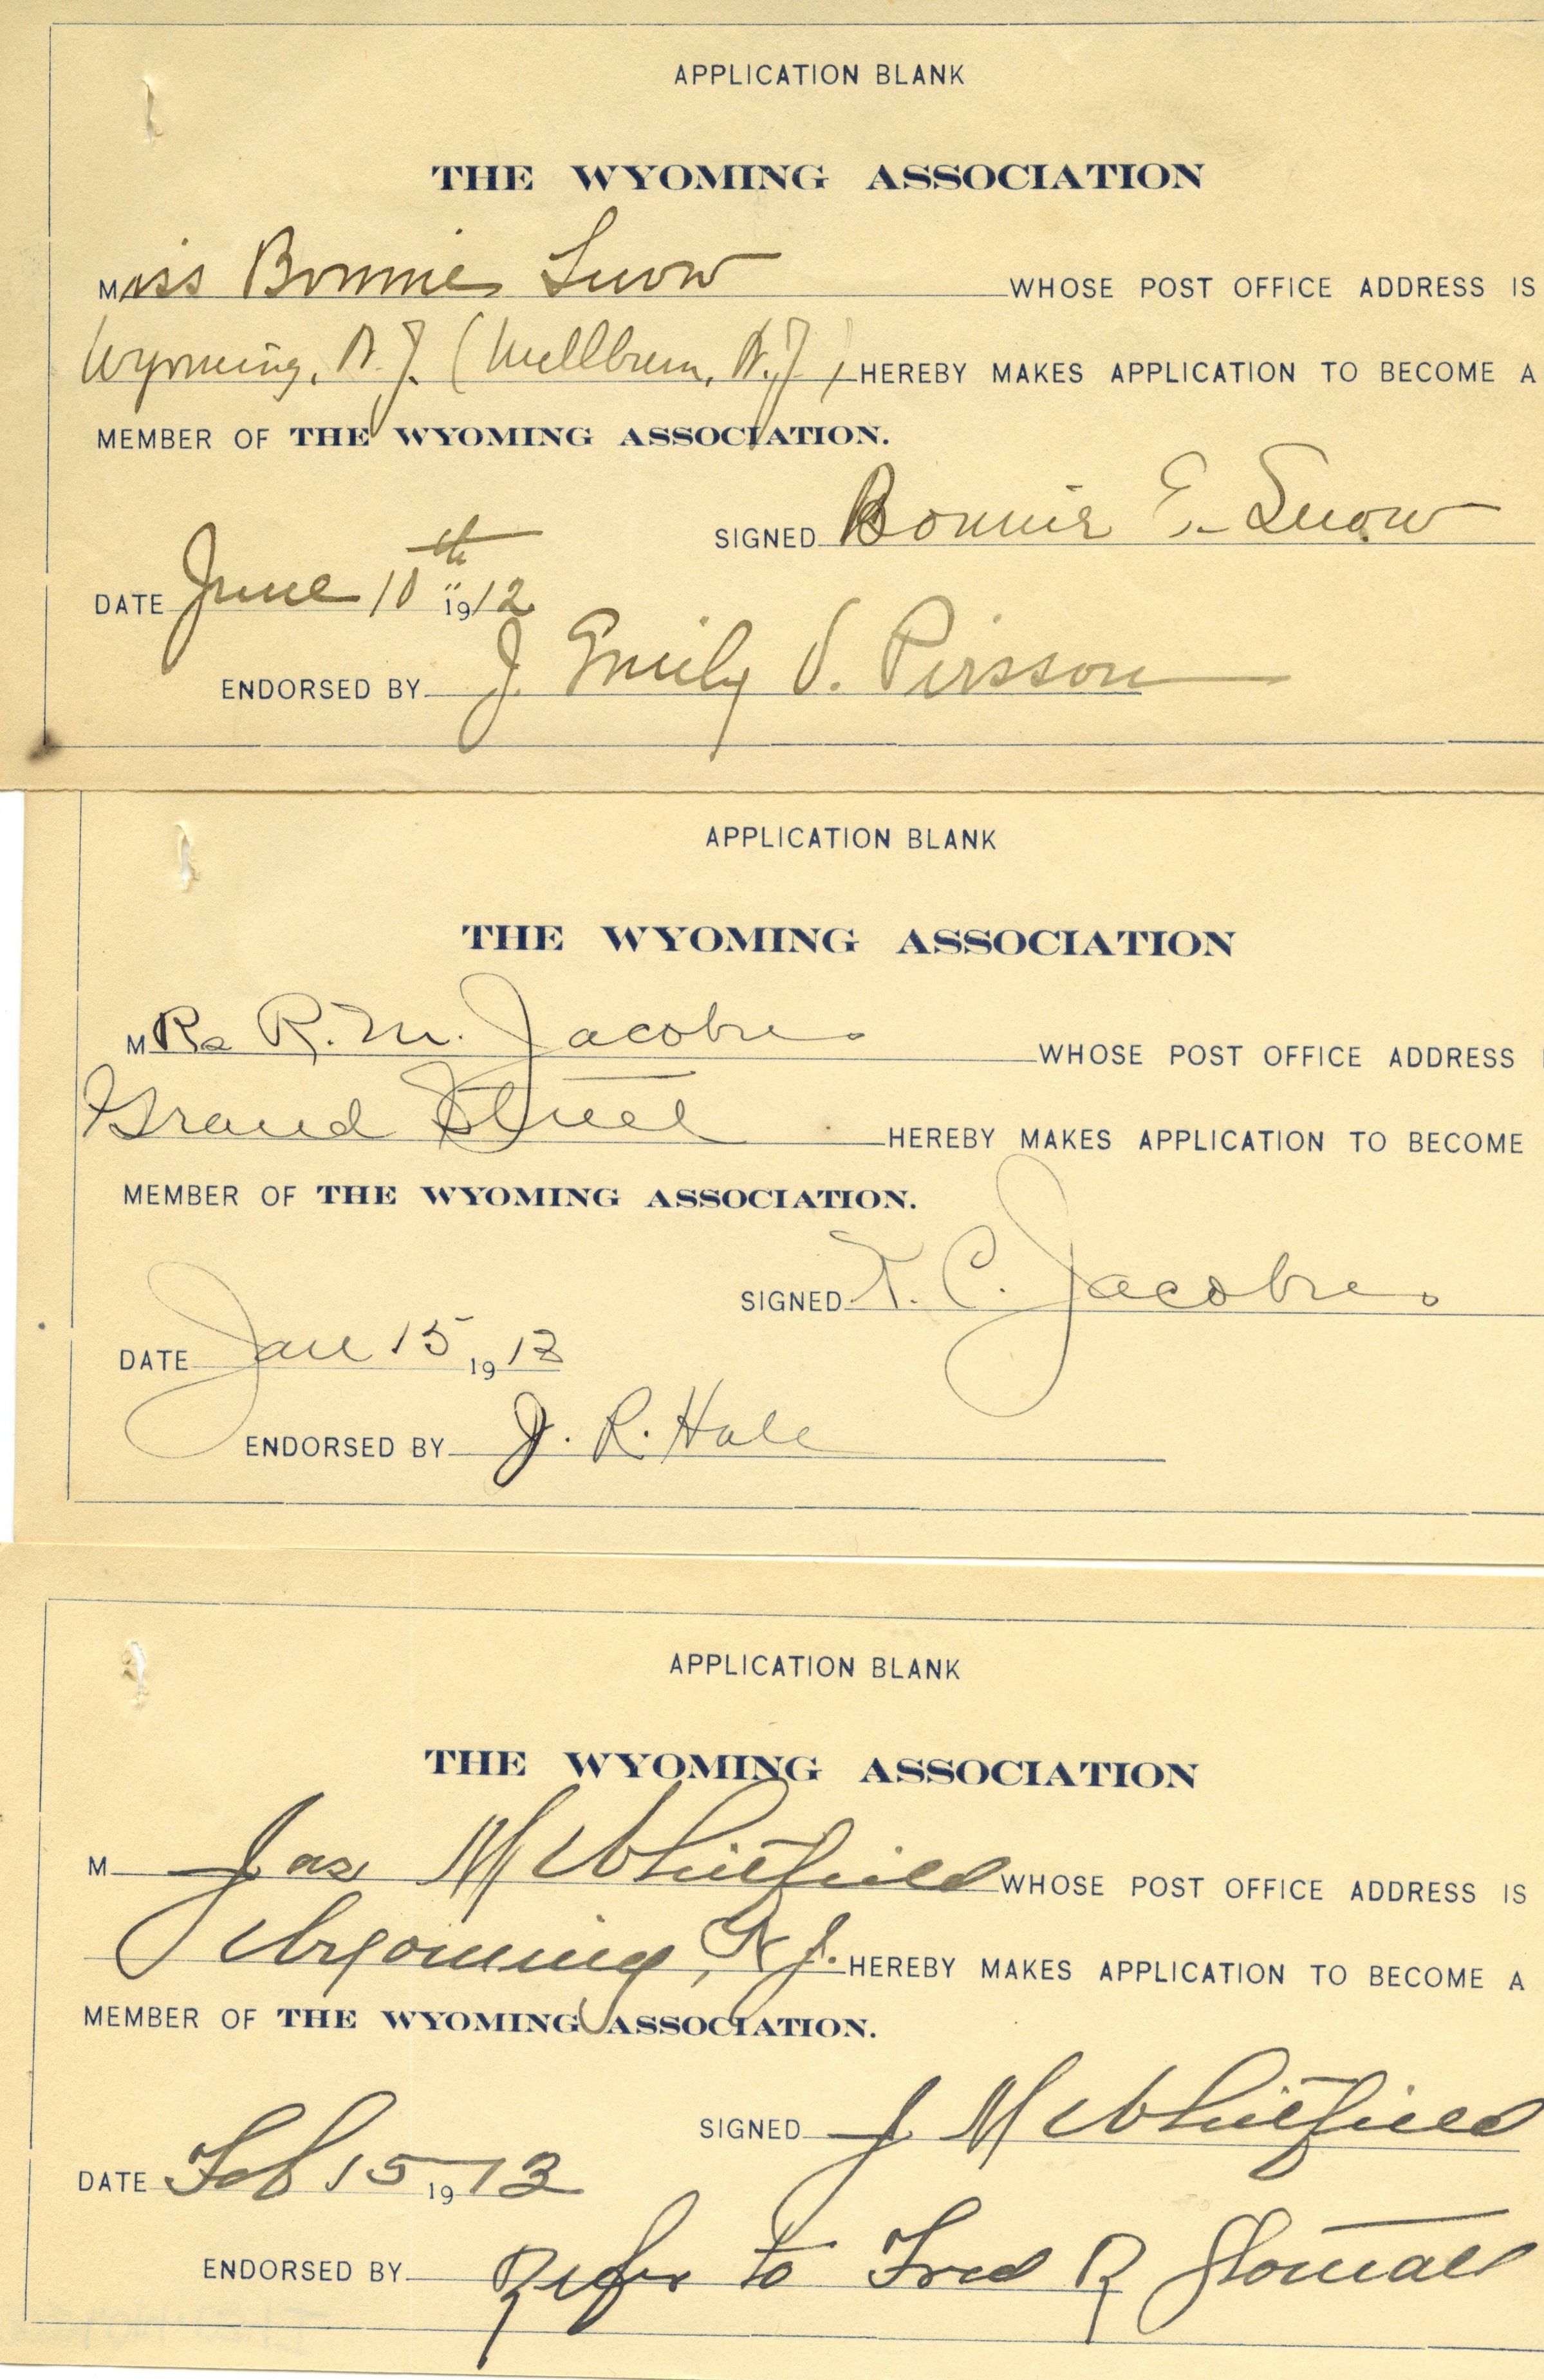 APPLICATION BLANK
THE WYOMING ASSOCIATION
Miss Bonnie Snow WHOSE POST OFFICE ADDRESS IS
Wyoming, N.J. (Millburn, N.J.) HEREBY MAKES APPLICATION TO BECOME A
MEMBER OF THE WYOMING ASSOCIATION.
SIGNED Bonnie E. Snow
DATE June 10th 1912
ENDORSED BY J. Emily V. Pirsson
APPLICATION BLANK
THE WYOMING ASSOCIATION
MRs R. M. Jacobus WHOSE POST OFFICE ADDRESS
Grand Street HEREBY MAKES APPLICATION TO BECOME
MEMBER OF THE WYOMING ASSOCIATION.
SIGNED C. Jacobus
DATE Jan 15 1913
ENDORSED BY J. R. Hale
APPLICATION BLANK
THE WYOMING ASSOCIATION
M Jas M Whitfield WHOSE POST OFFICE ADDRESS IS
Wyoming, N J. HEREBY MAKES APPLICATION TO BECOME A
MEMBER OF THE WYOMING ASSOCIATION.
SIGNED J M Whitfield
DATE Feb 15 1913
ENDORSED BY Refer to Fred R